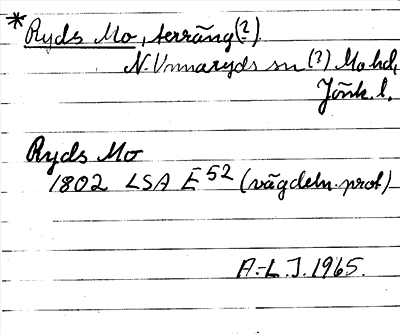 * Ryds Mo, terräng(?)
N. Unnaryds sn (?) Mo hd,
Jönk. l.
Ryds Mo
1802 LSA E 52 (vägdeln. prot)
A.-L. J. 1965.